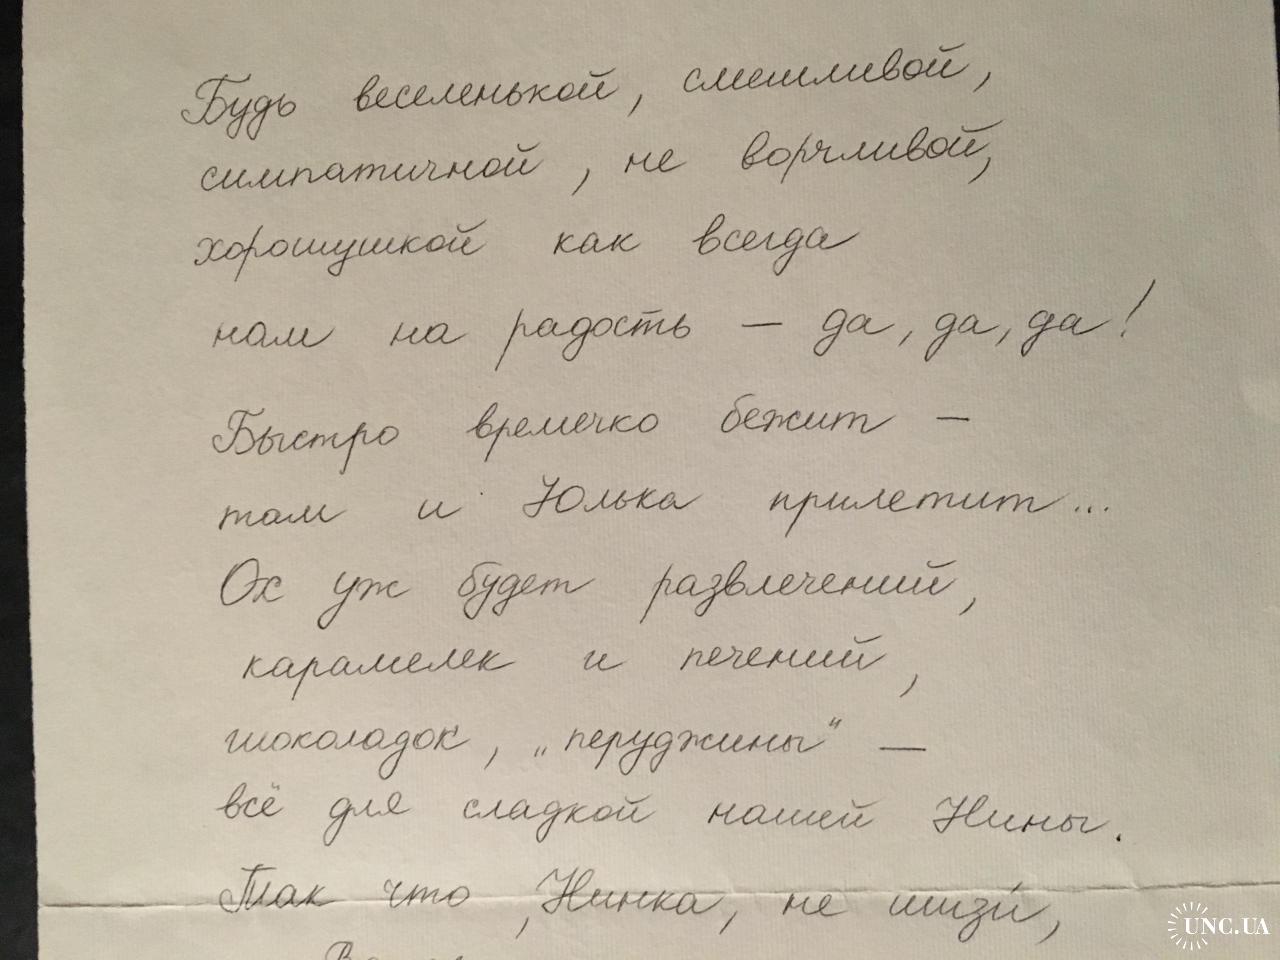 Будь веселенькой, смешливой,
симпатичной, не ворчливой,
хорошушкой как всегда
нам на радость — да, да, да!
Быстро времечко бежит —
там и Юлька прилетит...
Ох уж будет развлечений,
карамелек и печений,
шоколадок, „перуджины" —
всё для сладкой нашей Нины.
Так что, Нинка, не шизи́,
UNC.UA